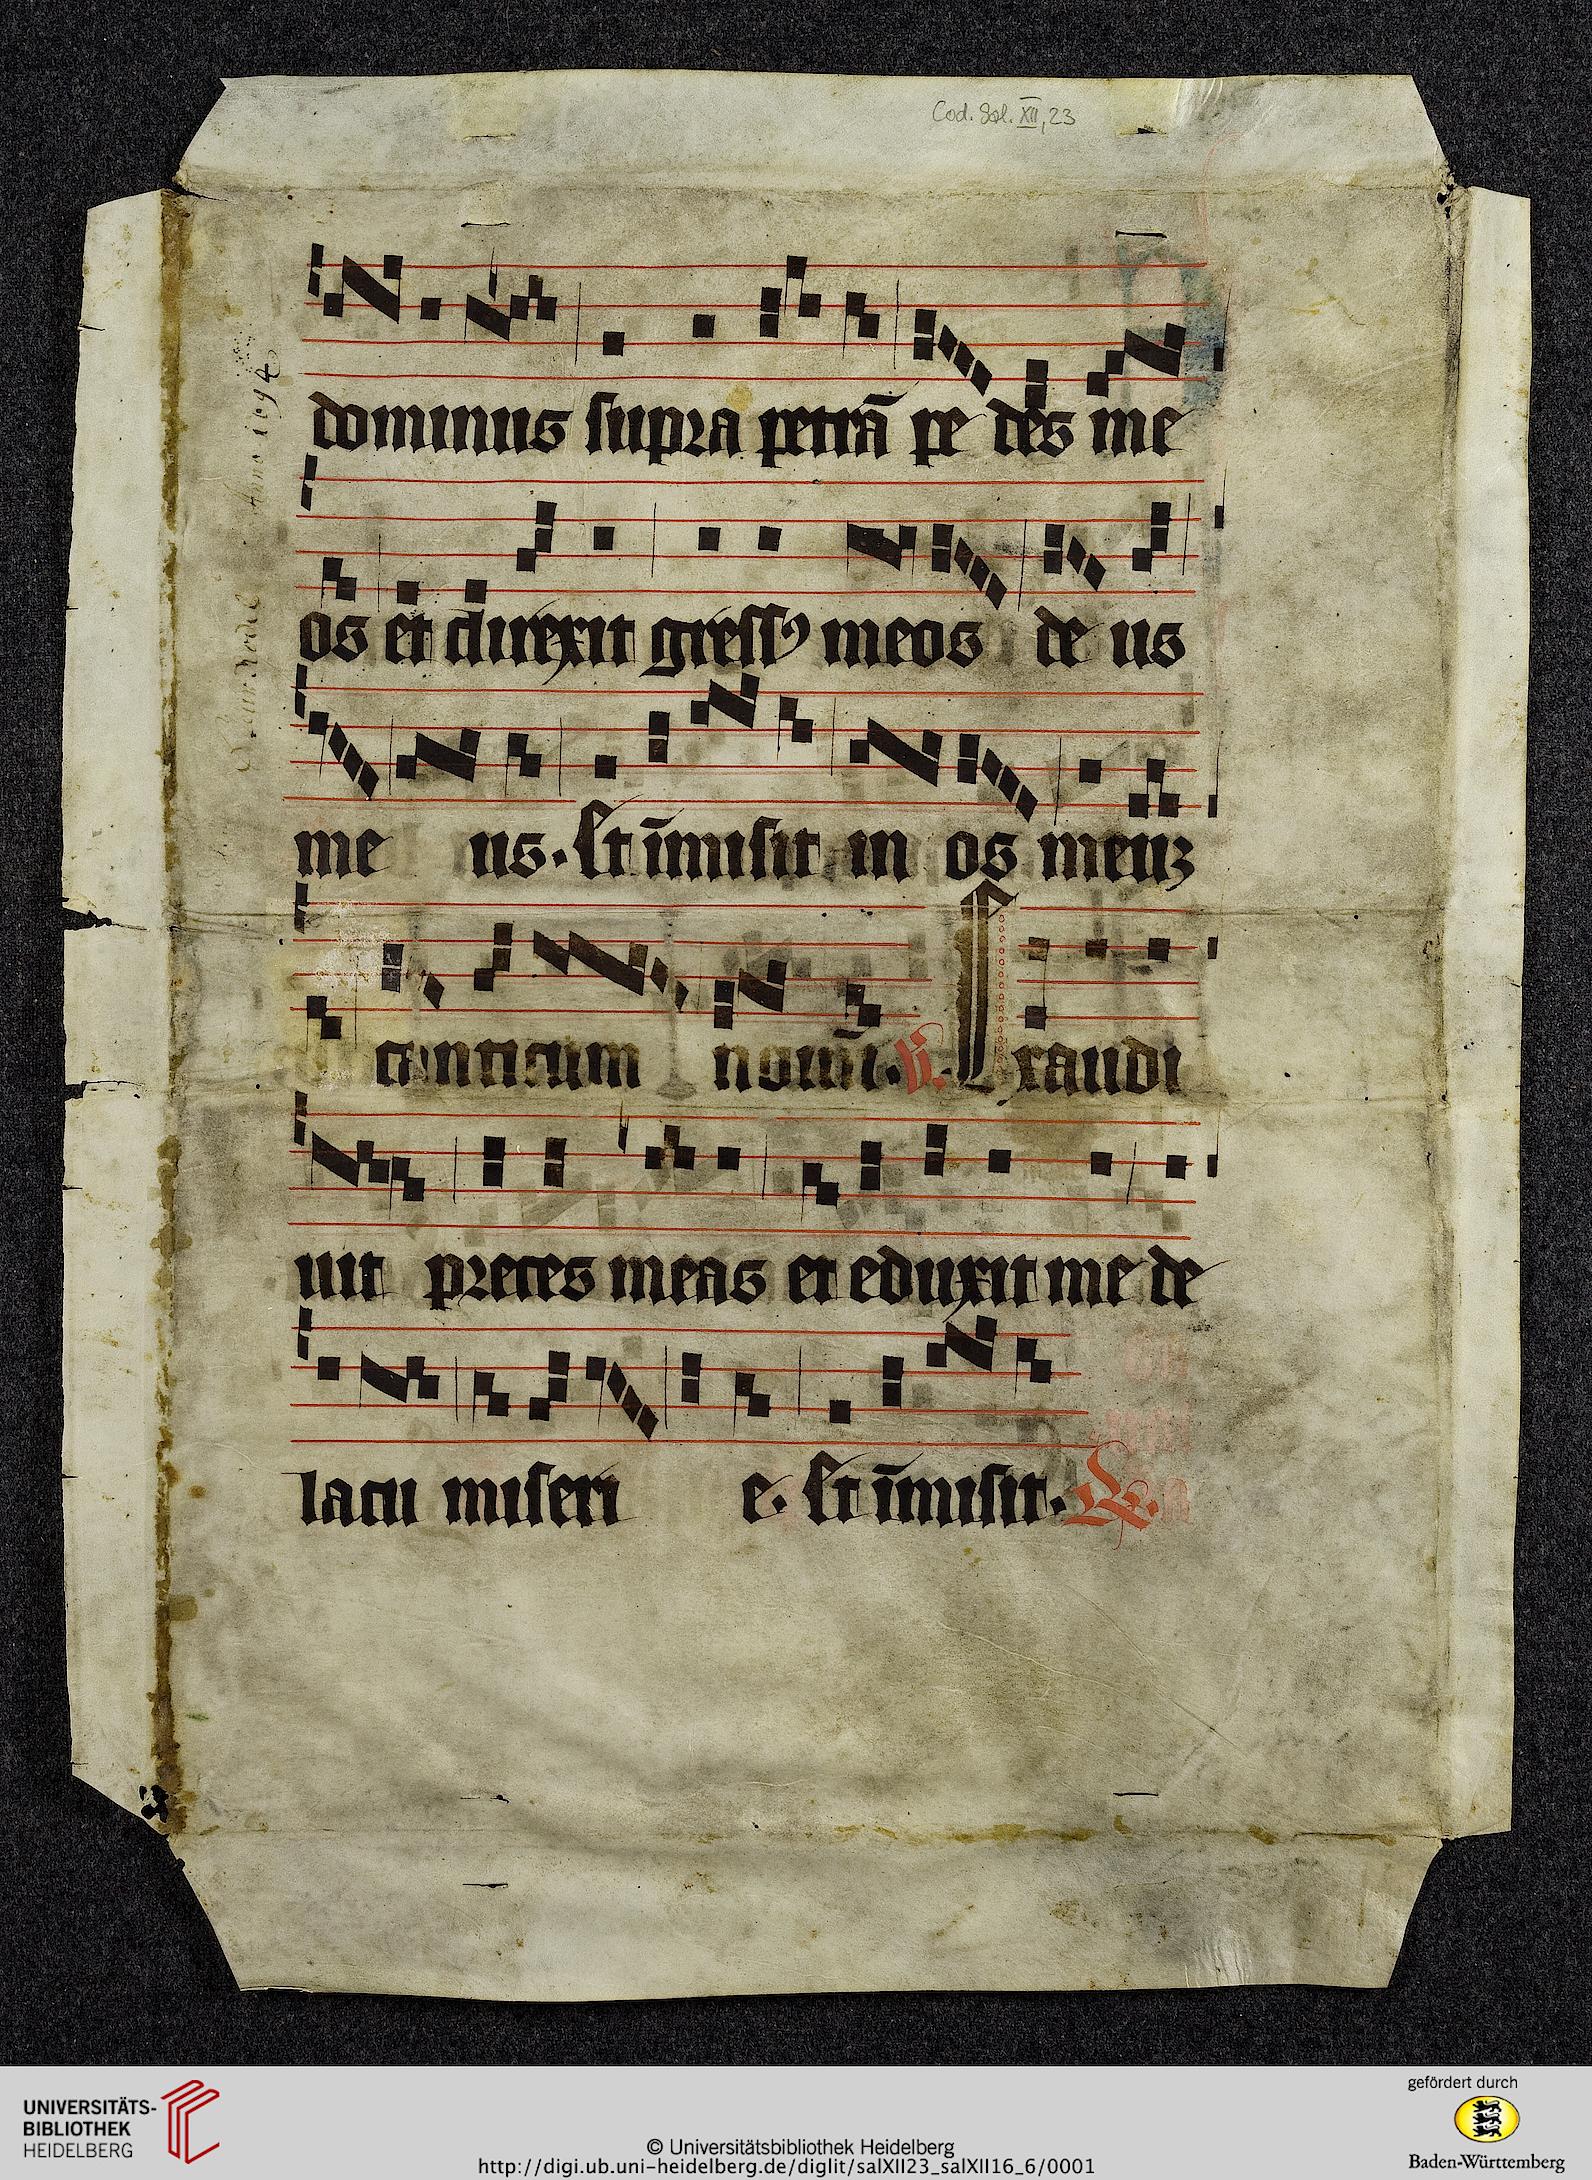 Cod. Sal. XII, 23
dominus supra petrā pe des me
os et direxit gressꝰ meos de us
me us. Et īmisit in os meuꝫ
canticum nouū. V. Exaudi
uit preces meas et eduxit me de
lacu miseri e. Et īmisit. R.
Anno 1694
UNIVERSITÄTS-
BIBLIOTHEK
HEIDELBERG
© Universitätsbibliothek Heidelberg
http://digi.ub.uni-heidelberg.de/diglit/salXII23_salXII16_6/0001
gefördert durch
Baden-Württemberg